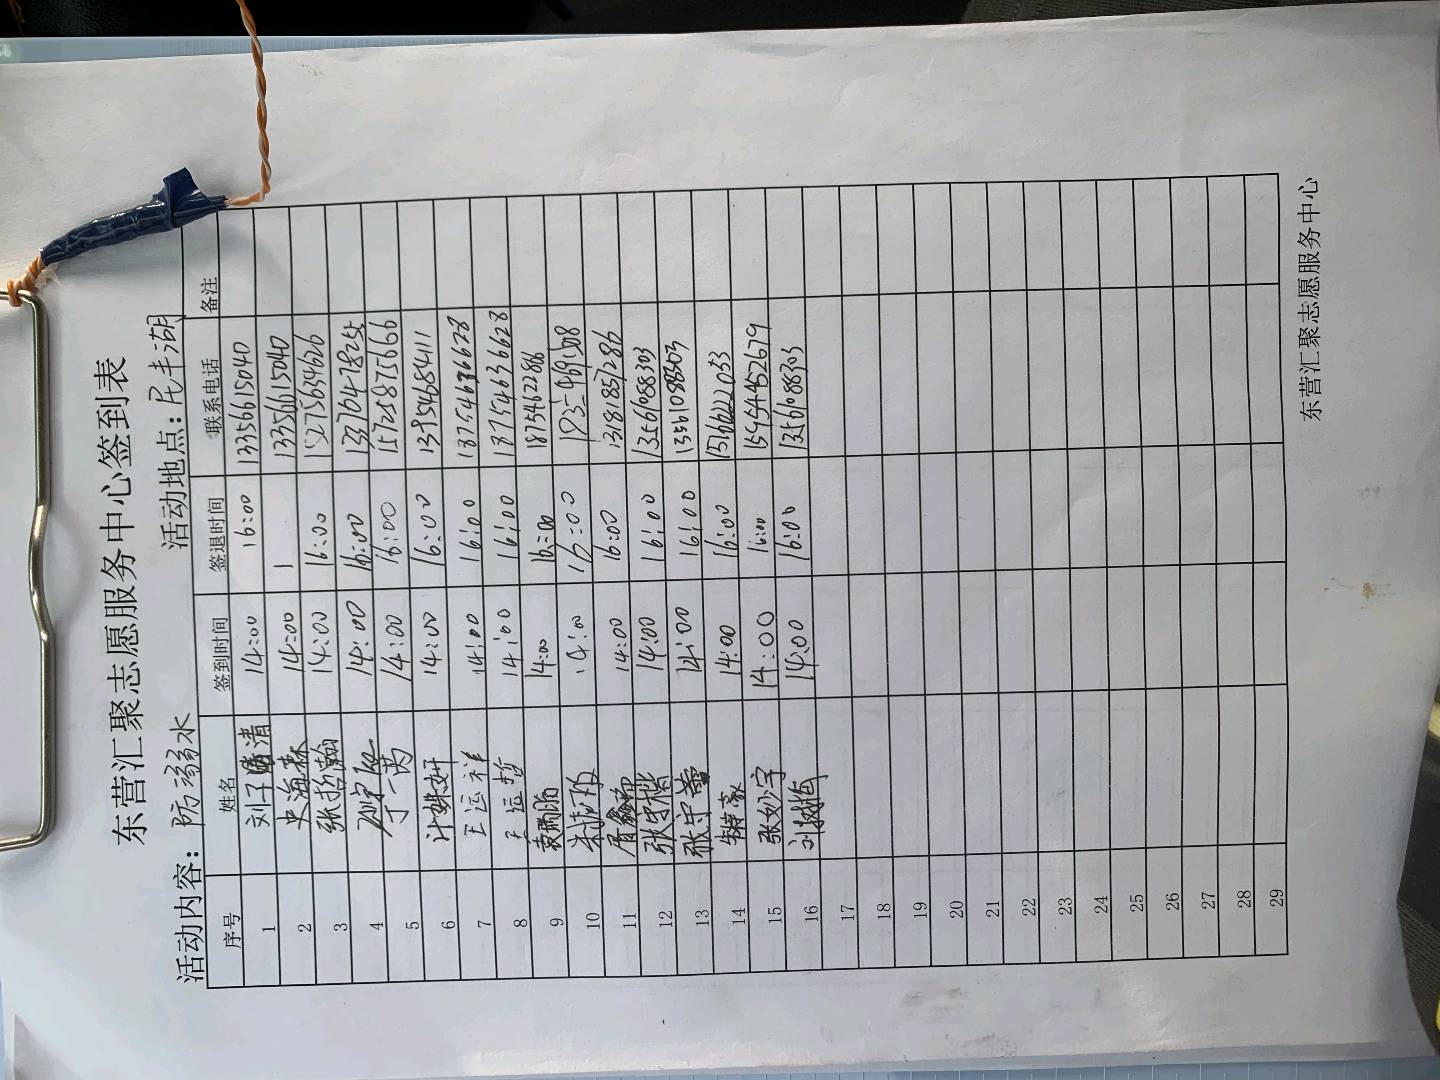 东营汇聚志愿服务中心签到表
活动内容：防溺水 活动地点：民丰湖
序号 姓名 签到时间 签退时间 联系电话 备注
1 刘子 清 14:00 16:00 13356615040
2 史海森 14:00 1 13356615040
3 张哲瀚 14:00 16:00 15275634626
4 14:00 16:00
5 丁一芮 14:00 16:00 15725875666
6 计姝妍 14:00 16:00 13954684411
7 王运祥 14:00 16:00 18754636628
8 王运哲 14:00 16:00 18754636628
9 14:00 16:00 18754622886
10 14:00 16:00
11 14:00 16:00 13181857286
12 张守楷 14:00 16:00 13561088303
13 张守蕾 14:00 16:00 13561088303
14 14:00 16:00
15 张妙宇 14:00 16:00 15954452679
16 刘树梅 14:00 16:00 13561088303
17
18
19
20
21
22
23
24
25
26
27
28
29
东营汇聚志愿服务中心